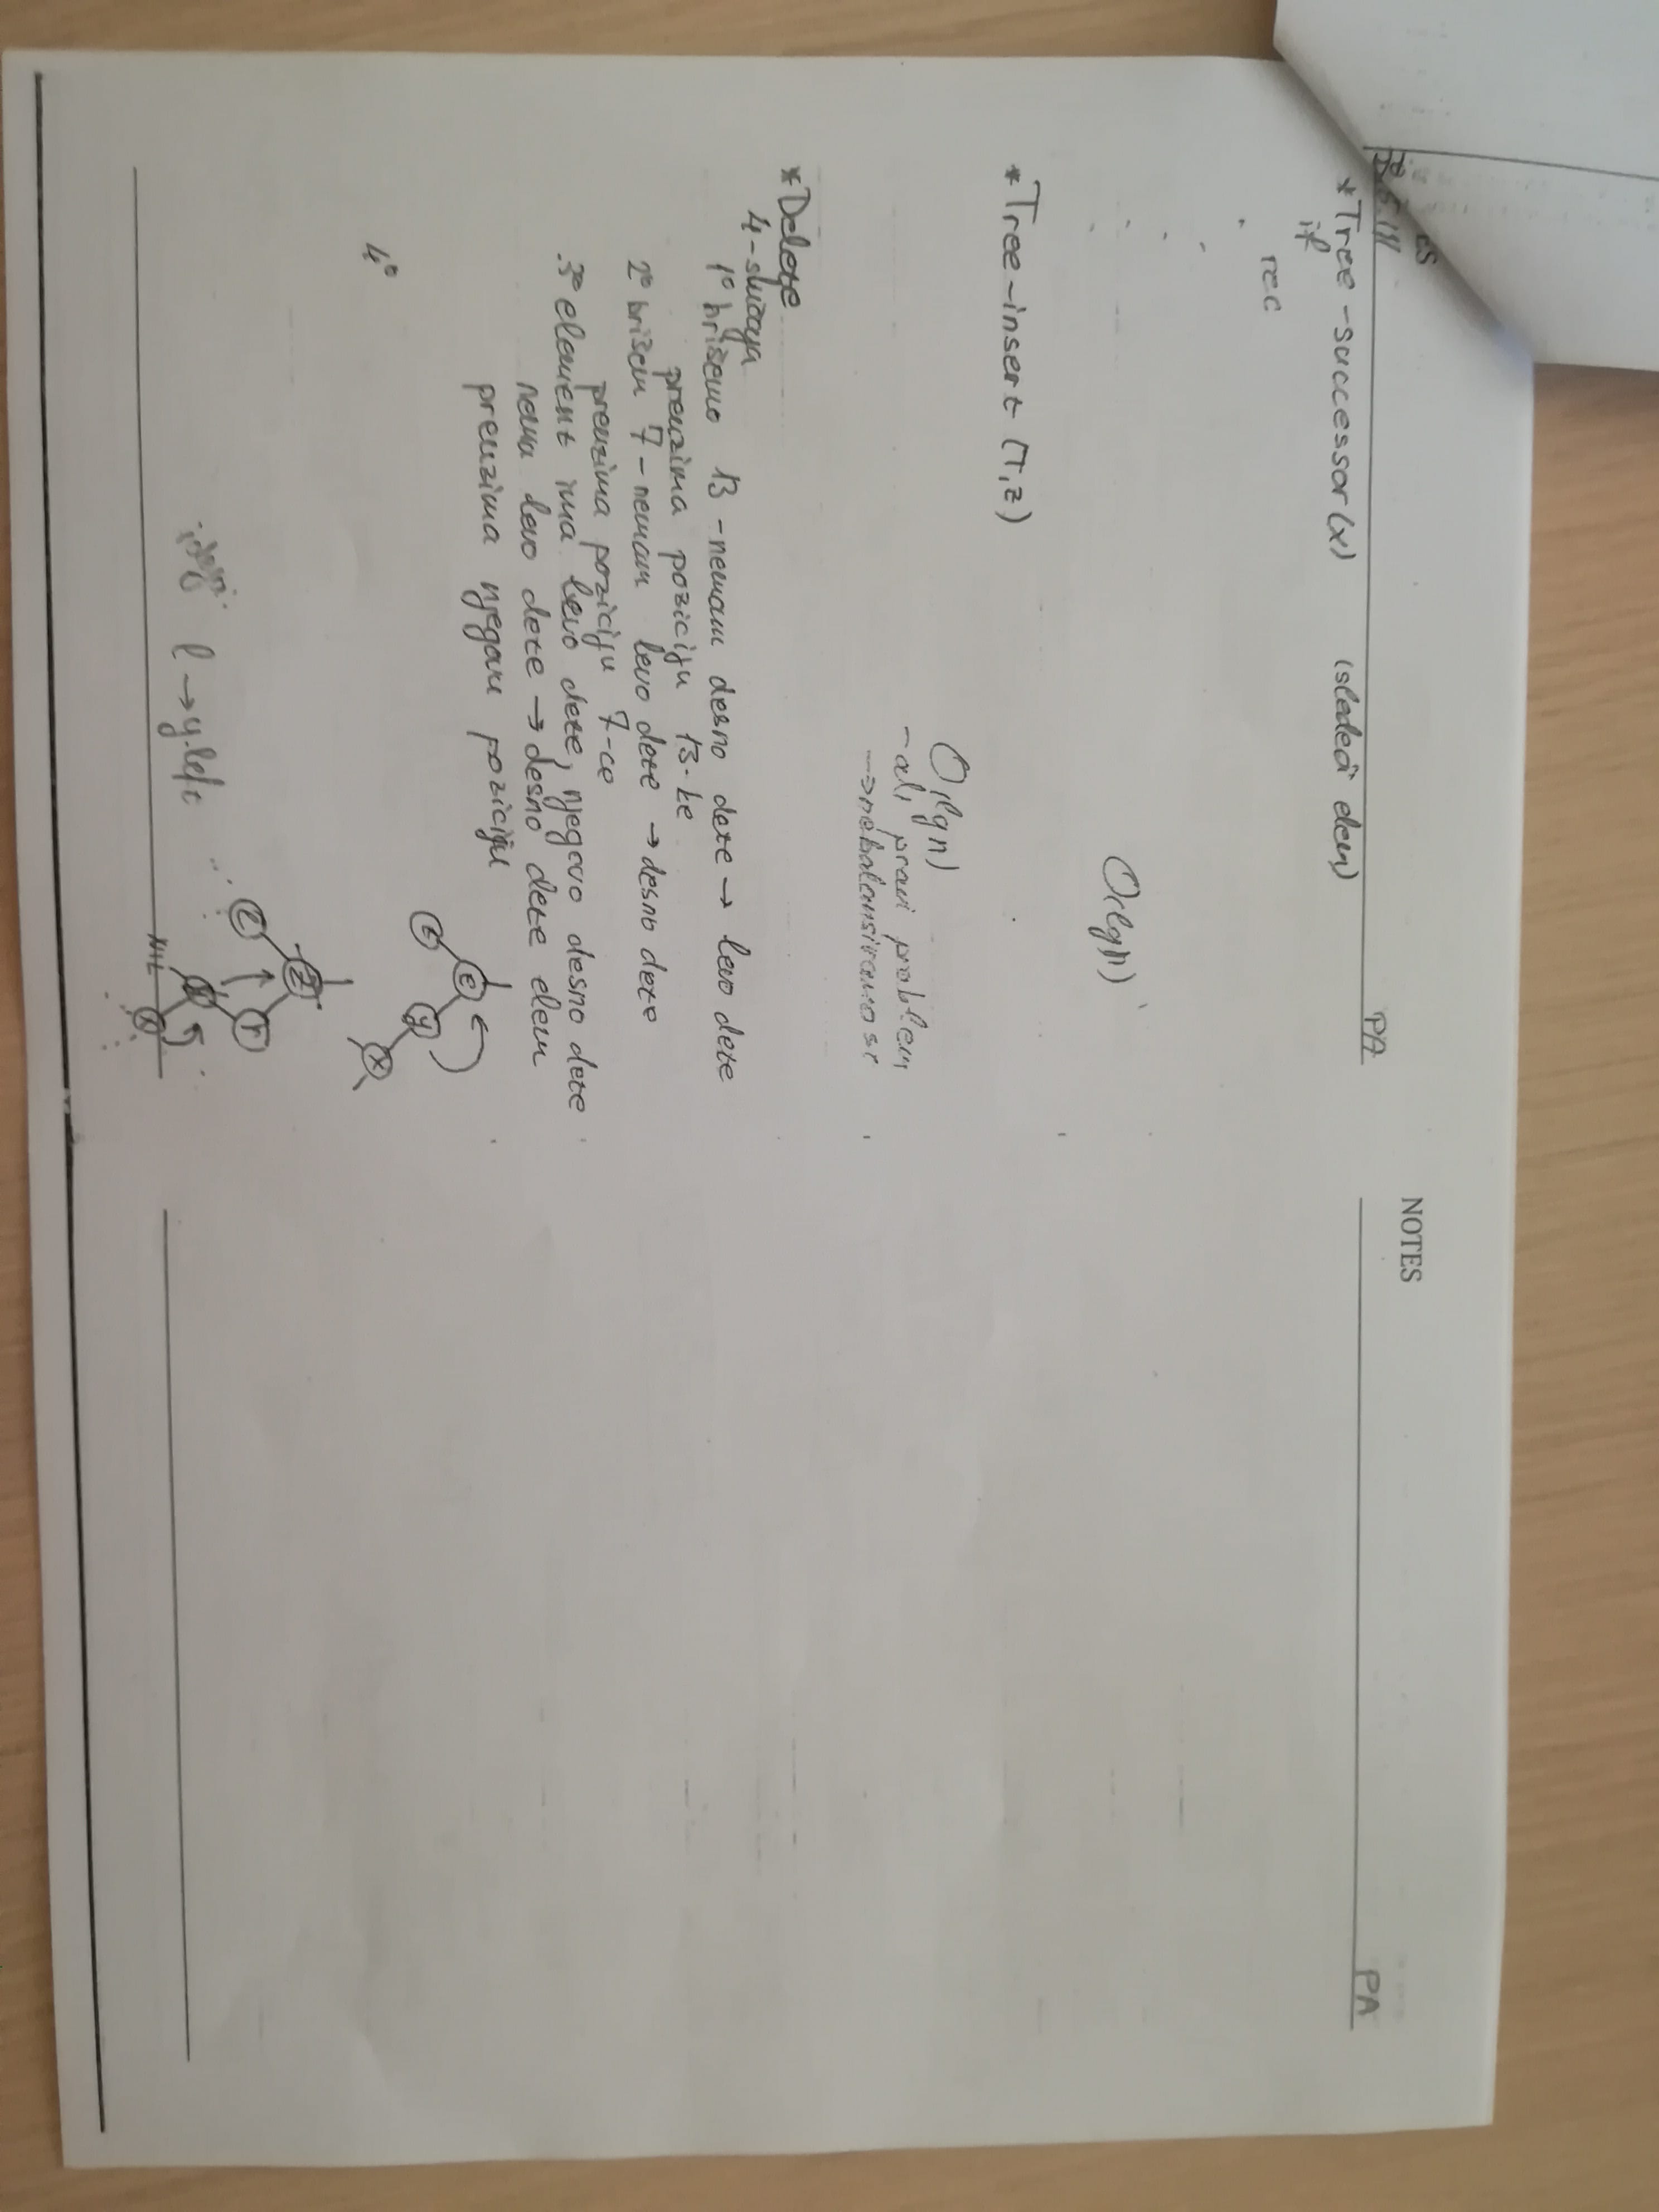 ES
PA
*Tree-successor(x) (sledeći elem)
if
rec
O(lgn)
*Tree-insert (T,z)
O(lgn)
-ali pravi problem
->nebalansiranost
*Delete
4-slučaja
1° brišemo 13 -nemam desno dete → levo dete
preuzima poziciju 13-ke
2° brišem 7-nemam levo dete → desno dete
preuzima poziciju 7-ce
3° element ima levo dete, njegovo desno dete
nema levo dete → desno dete elem
preuzima njegovu poziciju
y
x
4°
z
l
r
y
l → y.left
NIL
x
NOTES
PA